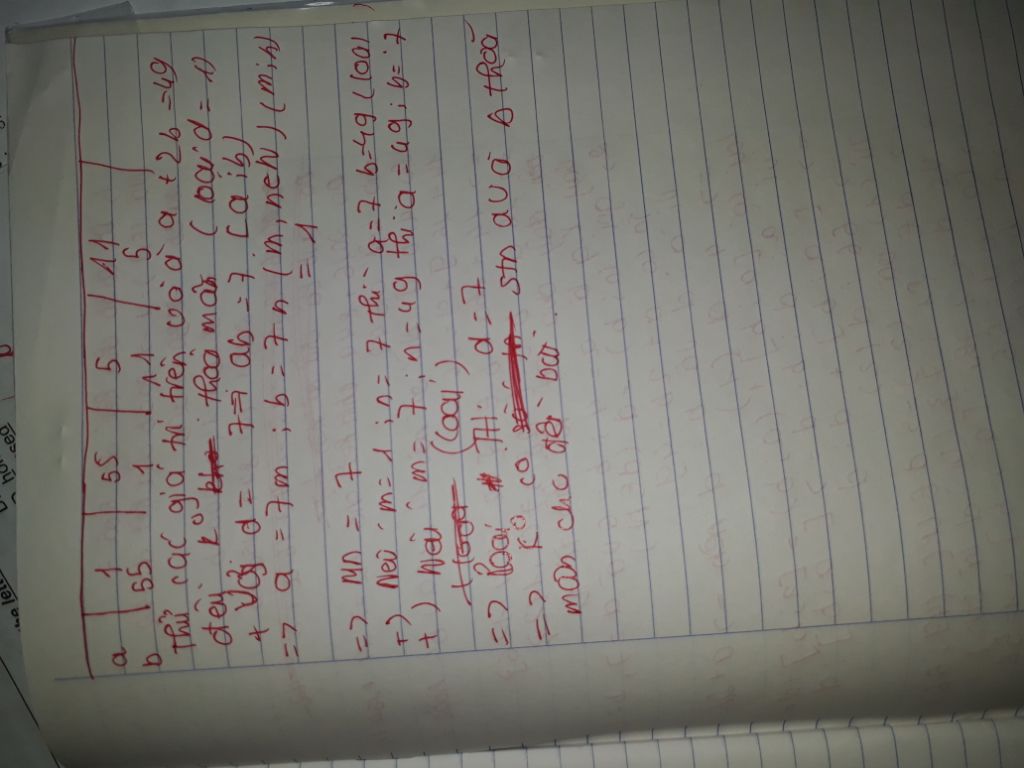 a | 1 | 55 | 5 | 11
b | 55 | 1 | 11 | 5
Thử các giá trị trên và à a + 2b = 49
đều ko thoả mãn ( loại d = 1)
+ Với d = 7 => ab = 7 [a;b)
=> a = 7m ; b = 7n ( m, n ∈ N ) ( m; n)
= 1
=> mn = 7
+) Nếu m = 1 ; n = 7 thì a = 7 b = 49 ( loại )
+) Nếu m = 7 ; n = 49 thì a = 49 ; b = 7
(loại)
=> loại TH d = 7
=> ko có stn a và b thoả
mãn cho đề bài.